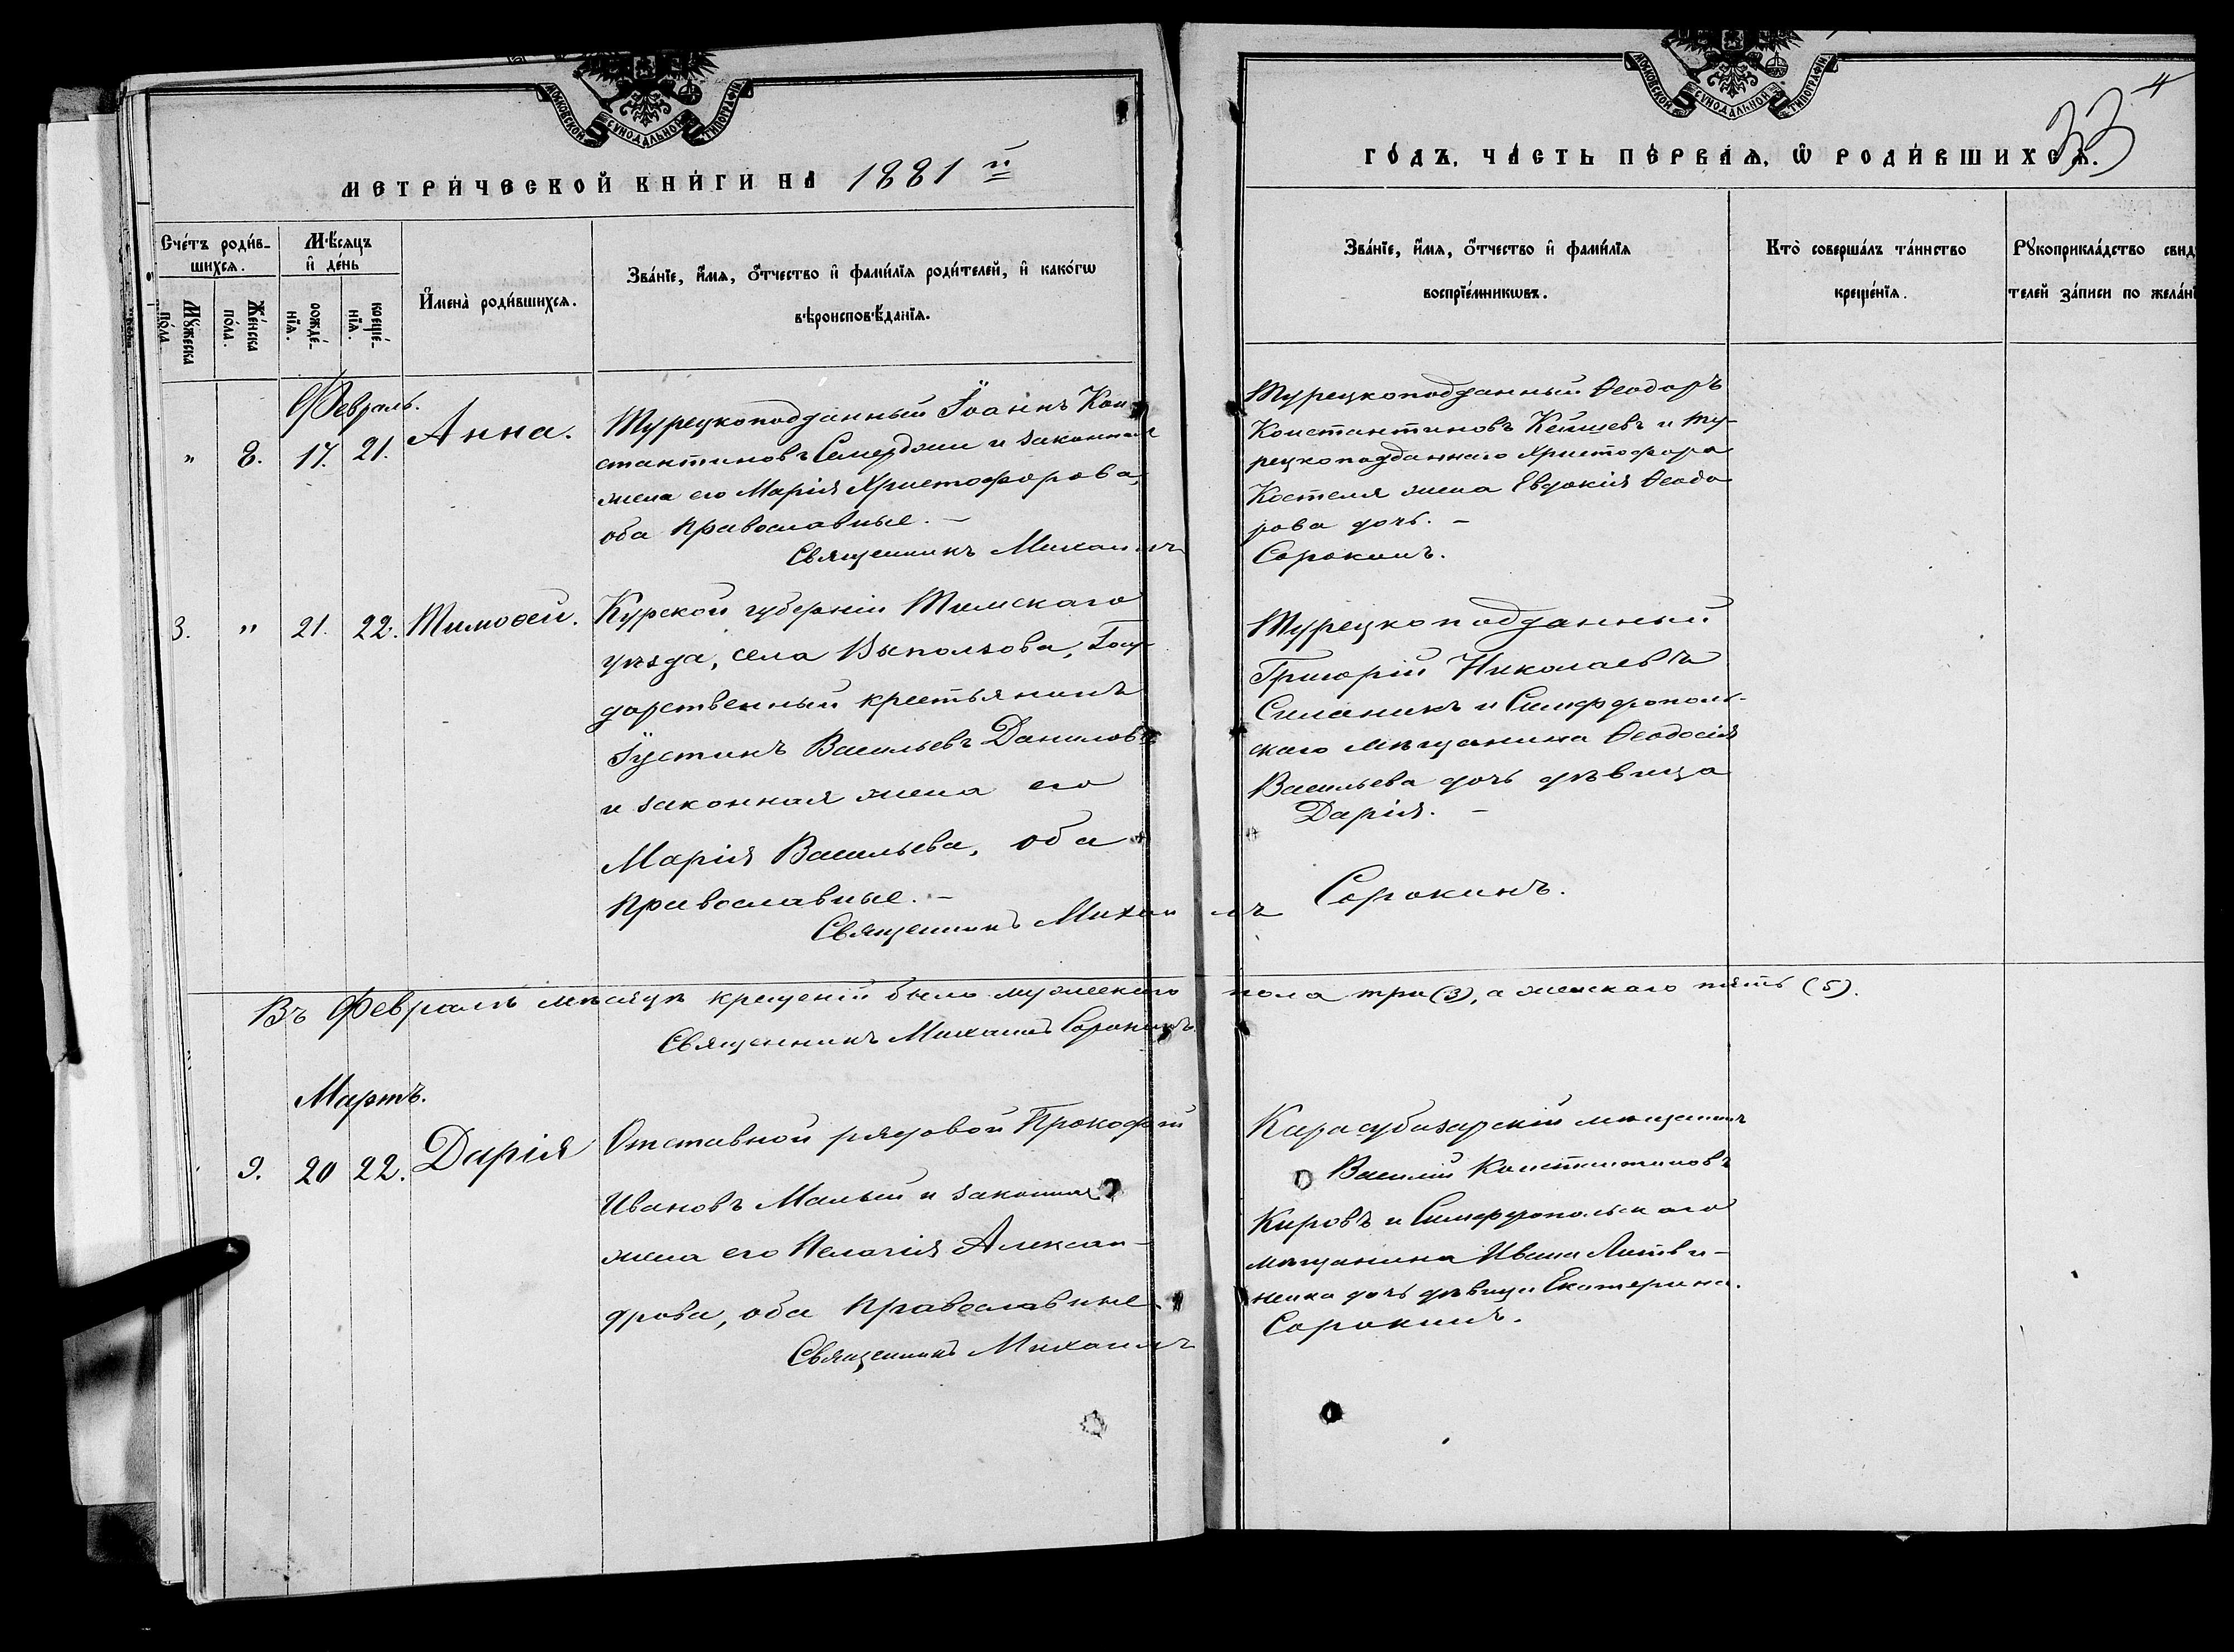 МОСКОВСКОЙ СУНОДАЛЬНОЙ ТИПОГРАФІИ
МЕТРИ́ЧЕСКОЙ КНИ́ГИ НА 1881й
Сче́тъ роди́в-
шихсѧ.
Мѣ́сѧцъ
и҆ де́нь
Мꙋ́жеска
по́ла.
Же́нска
по́ла.
рожде́-
нїѧ.
креще́-
нїѧ.
И҆мена̀ роди́вшихсѧ.
Зва́нїе, и҆́мѧ, ѻ҆́тчество и҆ фами́лїѧ роди́телей, и҆ како́гѡ
вѣроисповѣ́данїѧ.
Февраль.
" 8. 17. 21. Анна.
Турецкоподданный Іоаннъ Кон-
стантиновъ Семерджи и законная
жена его Марія Христофорова,
оба православные. –
Священникъ Михаилъ
3. " 21. 22. Тимоѳей.
Курской губерніи Тимскаго
уѣзда, села Выползова, Госу-
дарственный крестьянинъ
Іустинъ Васильевъ Даниловъ
и законная жена его
Марія Васильева, оба
православные. –
Священникъ Михаи
Въ Февралѣ мѣсяцѣ крещеній было мужескаго пола три (3), а женскаго пять (5).
Священникъ Михаилъ Сорокинъ.
Мартъ.
9. 20 22. Дарія
Отставной рядовой Прокофій
Ивановъ Малый и законная
жена его Пелагія Алексан-
дрова, оба православные.
Священникъ Михаилъ
МОСКОВСКОЙ СУНОДАЛЬНОЙ ТИПОГРАФІИ
33
4
ГО́ДЪ, ЧА́СТЬ ПЕ́РВАѦ, Ѡ҆ РОДИ́ВШИХСѦ.
Зва́нїе, и҆́мѧ, ѻ҆́тчество и҆ фами́лїѧ
воспрїе́мникѡвъ.
Кто̀ соверша́лъ та́инство
креще́нїѧ.
Рꙋкоприкла́дство свид
телей за́писи по жела́нї
Турецкоподданный Ѳеодоръ
Константиновъ Кеишевъ и ту-
рецкоподданнаго Христофора
Костеля жена Евдокія Ѳеодо
рова дочь. –
Сорокинъ.
Турецкоподданный
Григорій Николаевъ
Силаникъ и Симферополь-
скаго мѣщанина Ѳеодосія
Васильева дочь дѣвица
Дарія. –
лъ Сорокинъ.
Карасубазарскій мѣщанинъ
Василій Константиновъ
Кировъ и Симферопольскаго
мѣщанина Ивана Литви-
ненка дочь дѣвица Екатерина.
Сорокинъ.